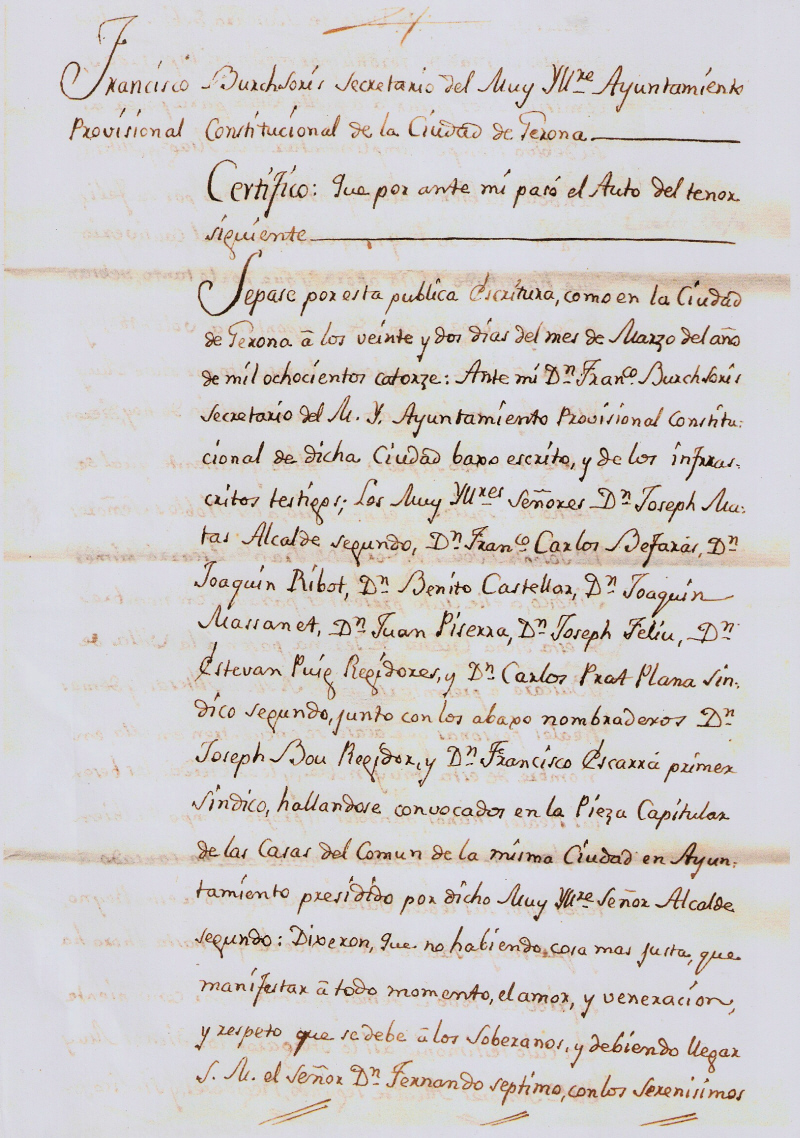 Francisco Burch Sorís Secretario del Muy Yllre Ayuntamiento
Provisional Constitucional de la Ciudad de Gerona
Certifico: que por ante mi pasó el Auto del tenor
siguiente
Sepase por esta publica Escritura, como en la Ciudad
de Gerona â los veinte y dos dias del mes de Marzo del año
de mil ochocientos catorze: Ante mi Dn. Franco. Burch Sorís
Secretario del M. Y. Ayuntamiento Provisional Constitu:
cional de dicha Ciudad baxo escrito, y de los infras:
critos testigos; Los Muy Yllres Señores Dn. Joseph Ma:
tas Alcalde segundo, Dn. Franco. Carlos Befarás, Dn.
Joaquin Ribot, Dn. Benito Castellar, Dn. Joaquin
Massanet, Dn. Juan Piserra, Dn. Joseph Feliu, Dn.
Estevan Puig Regidores, y Dn. Carlos Prat Plana Sin:
dico segundo, junto con los abaxo nombraderos Dn.
Joseph Bou Regidor, y Dn. Francisco Escarrá primer
Sindico, hallandose convocados en la Pieza Capitular
de las Casas del Comun de la misma Ciudad en Ayun:
tamiento presidido por dicho Muy Yllre. Señor Alcalde
segundo: Dixeron, que no habiendo cosa mas justa, que
manifestar â todo momento, el amor, y veneracion,
y respeto que se debe â los Soberanos, y debiendo llegar
S. M. el Señor Dn. Fernando septimo, con los Serenisimos